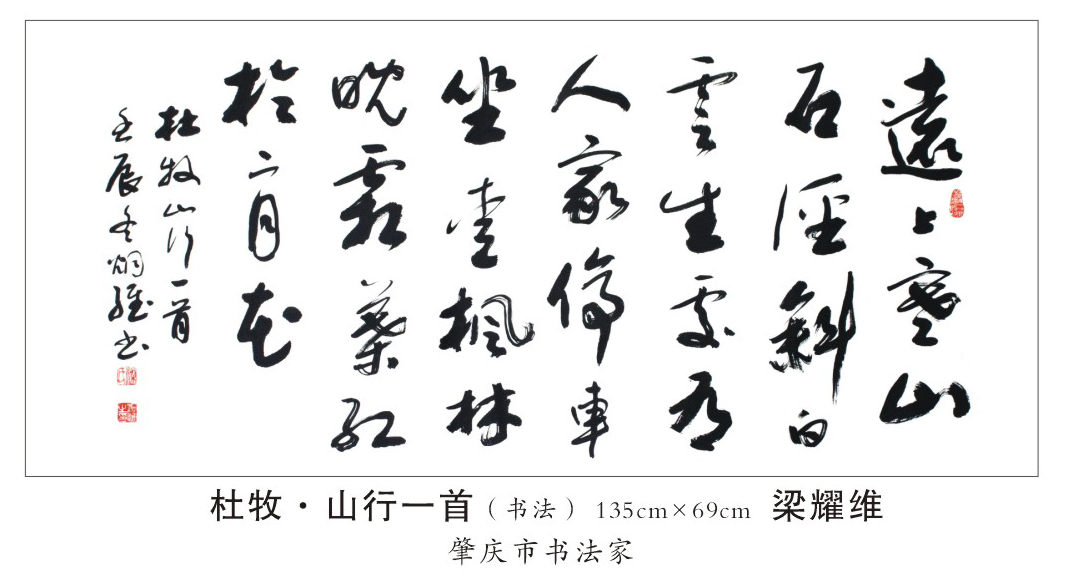 遠上寒山
石徑斜白
雲生處有
人家停車
坐愛楓林
晚霜葉紅
於二月花
杜牧山行一首
壬辰冬維書
杜牧·山行一首（书法） 135cm×69cm 梁耀维
肇庆市书法家